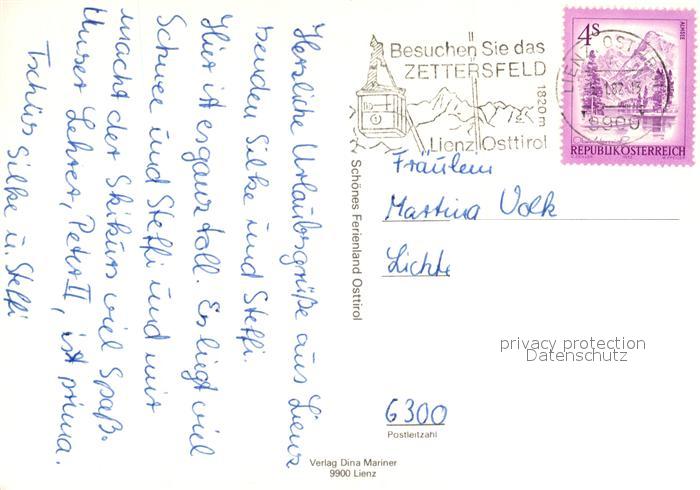 Herzliche Urlaubsgrüße aus Lienz
senden Silke und Steffi.
Hier ist es ganz toll. Es liegt viel
Schnee und Steffi und mir
macht der Skikurs viel Spaß.
Unser Lehrer, Peter II, ist prima.
Tschüs Silke u. Steffi
Besuchen Sie das
ZETTERSFELD
1820 m
Lienz Osttirol
LIENZ OSTTIROL
9900
ALMSEE
4S
REPUBLIK ÖSTERREICH
Schönes Ferienland Osttirol
Fräulein
Martina Volk
Lichte
privacy protection
Datenschutz
6300
Postleitzahl
Verlag Dina Mariner
9900 Lienz